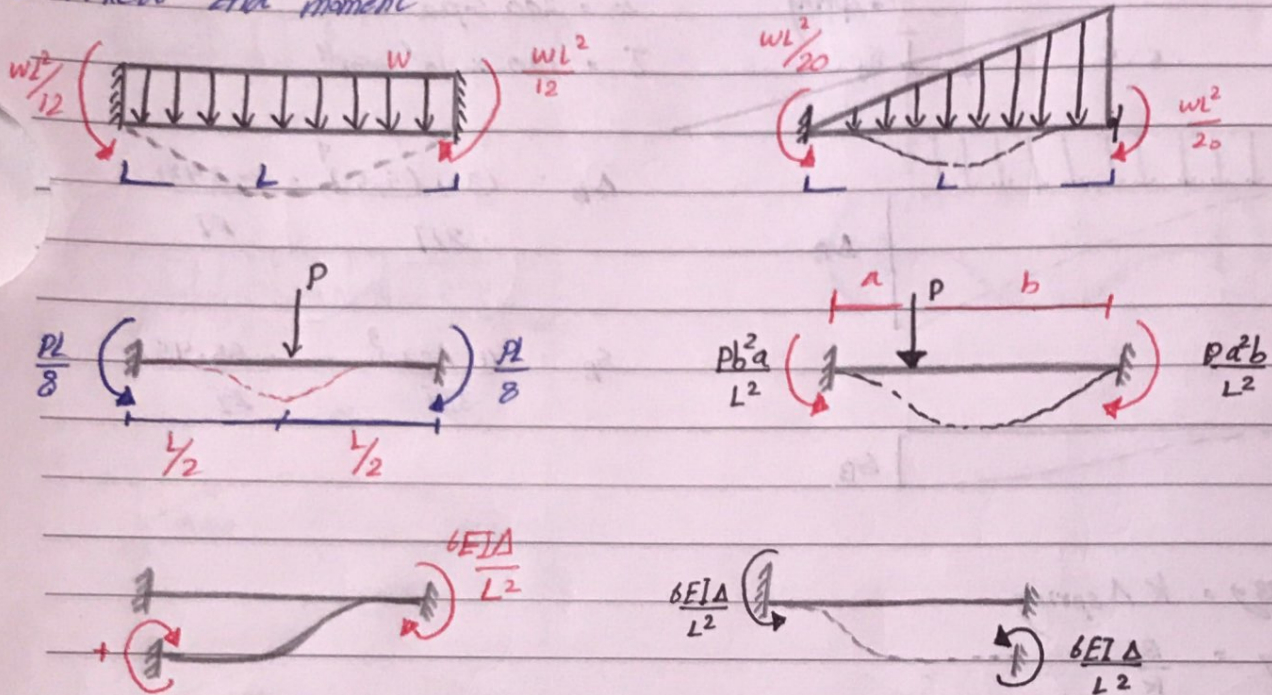 end moment
wL²/12 w wL²/12
L
wL²/20 wL²/20
L
P
PL/8 PL/8
L/2 L/2
a P b
Pb²a/L² Pa²b/L²
6EIΔ/L²
+
6EIΔ/L²
6EIΔ/L²